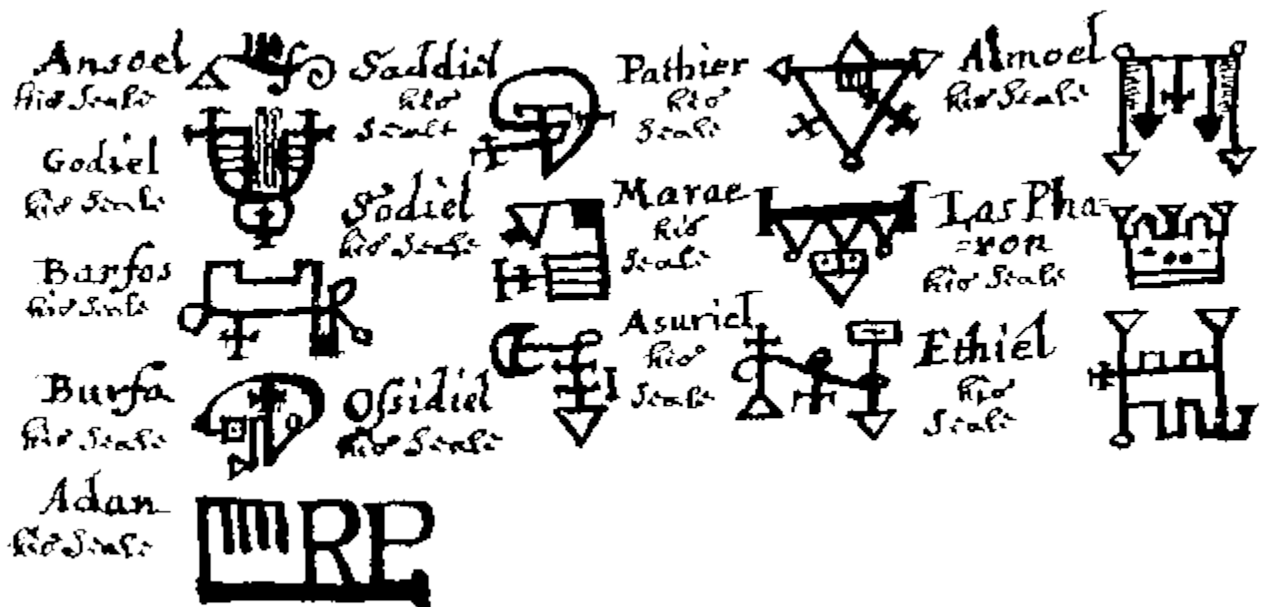 Ansoel
his Seale
Godiel
his Seale
Barfos
his Seale
Burfa
his Seale
Adan
his Seale
Saddiel
his
Seale
Sodiel
his Seale
Ossidiel
his Seale
Pathier
his
Seale
Marae
his
Seale
Asuriel
his
Seale
Almoel
his Seale
Las Pha=
=ron
his Seale
Ethiel
his
Seale